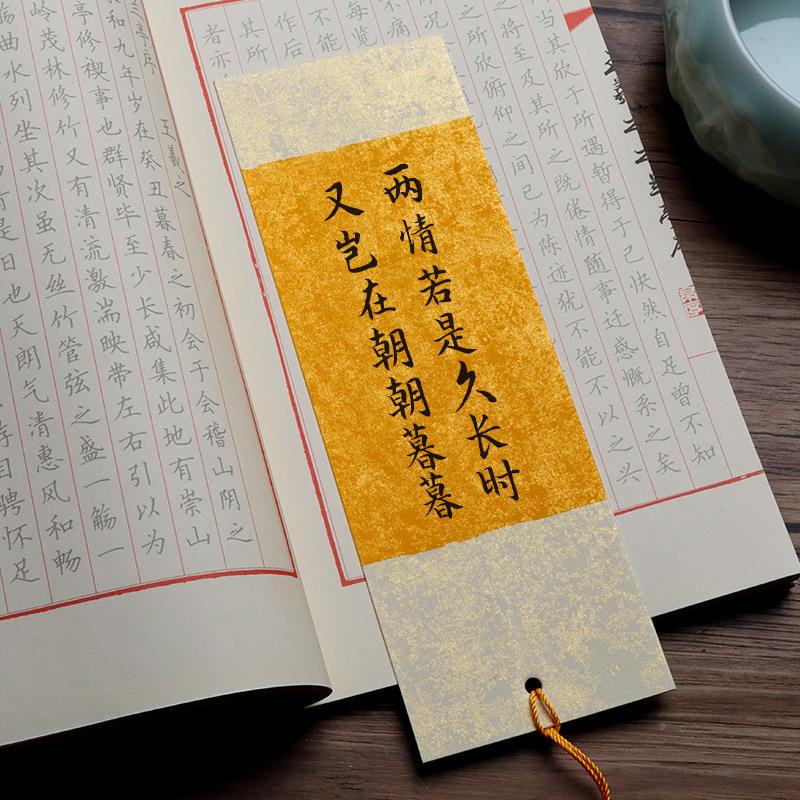 两情若是久长时
又岂在朝朝暮暮
当其欣于所遇暂得于己快然自足曾不知
之将至及其所之既倦情随事迁感慨系之矣
之所欣俯仰之间已为陈迹犹不能不以之兴
况
痛
每览
不能
作后
其所
者亦
亭序 王羲之
和九年岁在癸丑暮春之初会于会稽山阴之
亭修禊事也群贤毕至少长咸集此地有崇山
岭茂林修竹又有清流激湍映带左右引以为
曲水列坐其次虽无丝竹管弦之盛一觞一
是日也天朗气清惠风和畅
游目骋怀足